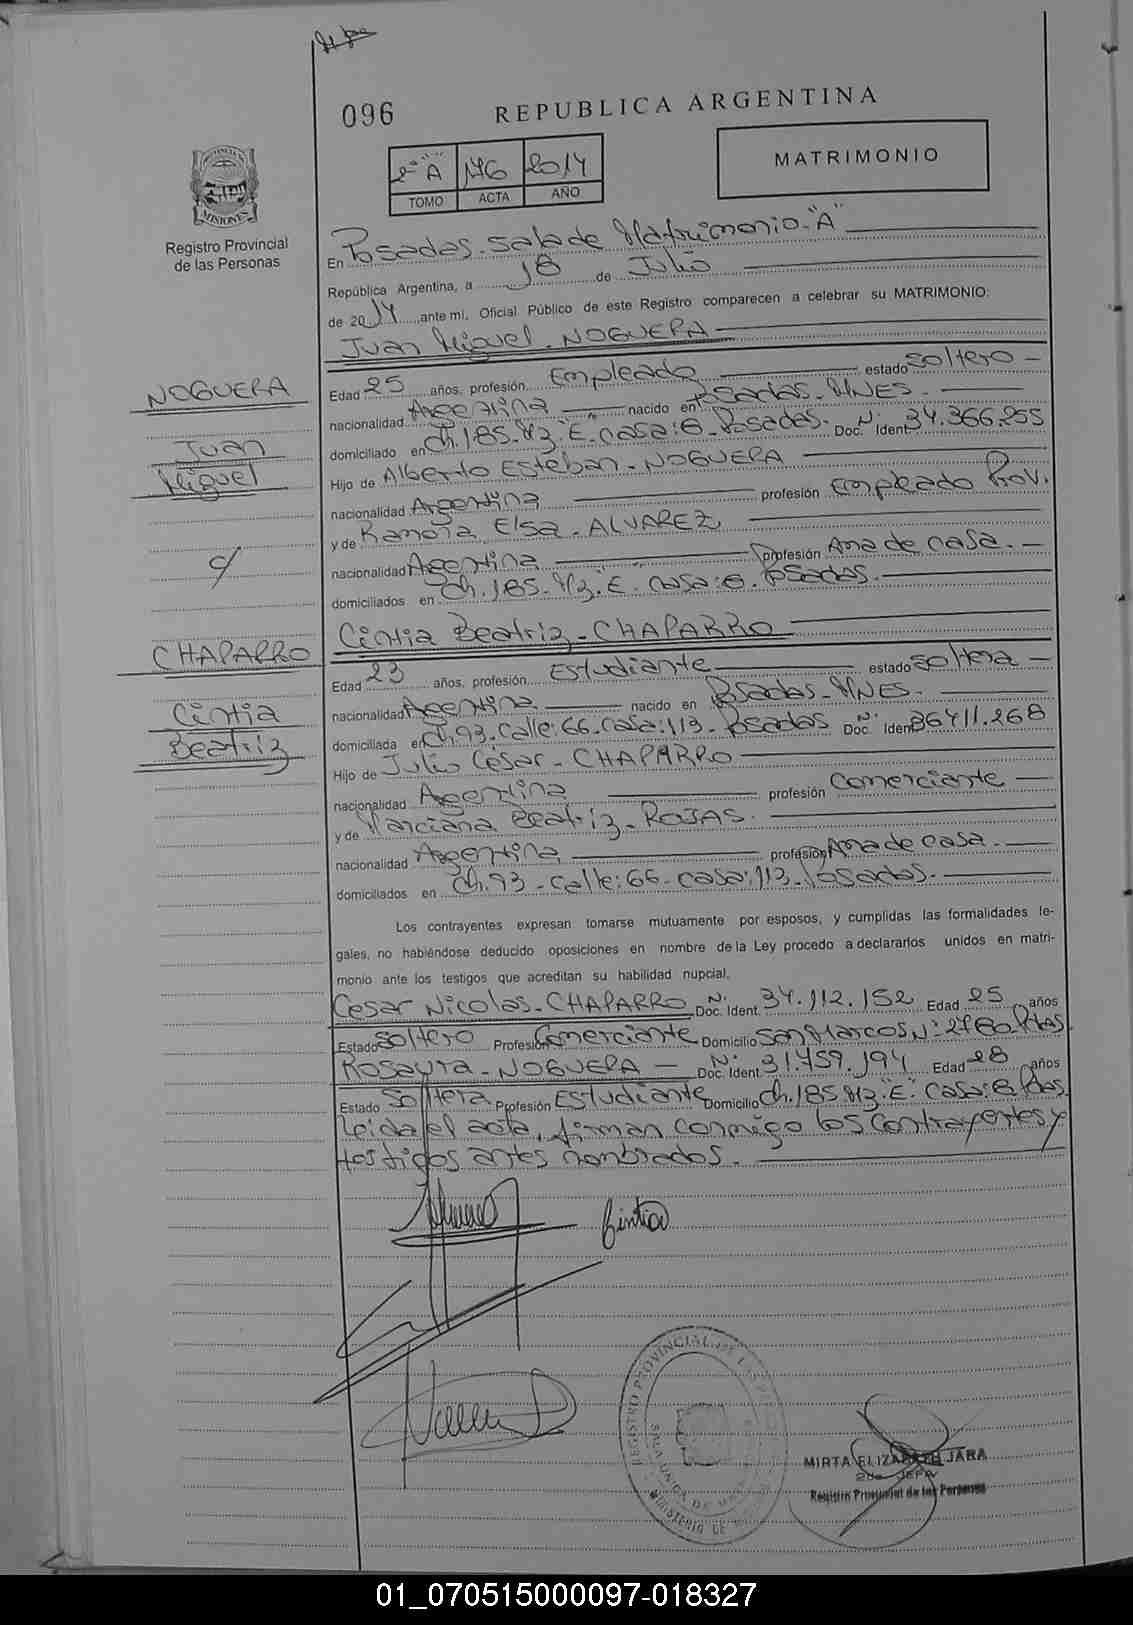 096
REPUBLICA ARGENTINA
2º "A" 176 2014
TOMO ACTA AÑO
MATRIMONIO
PROVINCIA DE
MISIONES
Registro Provincial
de las Personas
En Posadas. Sala de Matrimonio. "A"
República Argentina, a 18 de Julio
de 2014, ante mi, Oficial Público de este Registro comparecen a celebrar su MATRIMONIO:
Juan Miguel. NOGUERA
NOGUERA
Juan
Miguel
c/
CHAPARRO
Cintia
Beatriz
Edad 25 años, profesión Empleado estado soltero
nacionalidad Argentina nacido en Posadas. MNES.
domiciliado en Ch. 185. Mz. "E". casa: 8. Posadas. Doc. Nº Ident. 34.366.255
Hijo de Alberto Esteban. NOGUERA
nacionalidad Argentina profesión Empleado Prov.
y de Ramona Elsa. ALVAREZ
nacionalidad Argentina profesión Ama de casa.
domiciliados en Ch. 185. Mz. "E". casa: 8. Posadas.
Cintia Beatriz. CHAPARRO
Edad 23 años, profesión Estudiante estado soltera
nacionalidad Argentina nacido en Posadas. MNES.
domiciliada en Ch. 93. Calle: 66. Casa: 113. Posadas Doc. Nº Iden 36411.268
Hijo de Julio César. CHAPARRO
nacionalidad Argentina profesión Comerciante
y de Marciana Beatriz. ROJAS.
nacionalidad Argentina profesión Ama de casa.
domiciliados en Ch. 93. calle: 66. casa: 113. Posadas.
Los contrayentes expresan tomarse mutuamente por esposos, y cumplidas las formalidades le-
gales, no habiéndose deducido oposiciones en nombre de la Ley procedo a declararlos unidos en matri-
monio ante los testigos que acreditan su habilidad nupcial.
Cesar Nicolas. CHAPARRO Doc. Nº Ident. 34.112.152 Edad 25 años
Estado soltero Profesión Comerciante Domicilio San Marcos Nº: 2780 Pdas.
Rosaura. NOGUERA Doc. Nº Ident. 31.759.194 Edad 28 años
Estado Soltera Profesión Estudiante Domicilio Ch. 185. Mz. "E". Casa: 8. Pdas.
Leida el acta, firman conmigo los contrayentes y
testigos antes nombrados.
Cintia
REGISTRO PROVINCIAL DE LAS
SALA UNICA DE
MINISTERIO DE
MIRTA ELIZABETH JARA
2da. JEFA
Registro Provincial de las Personas
01_070515000097-018327